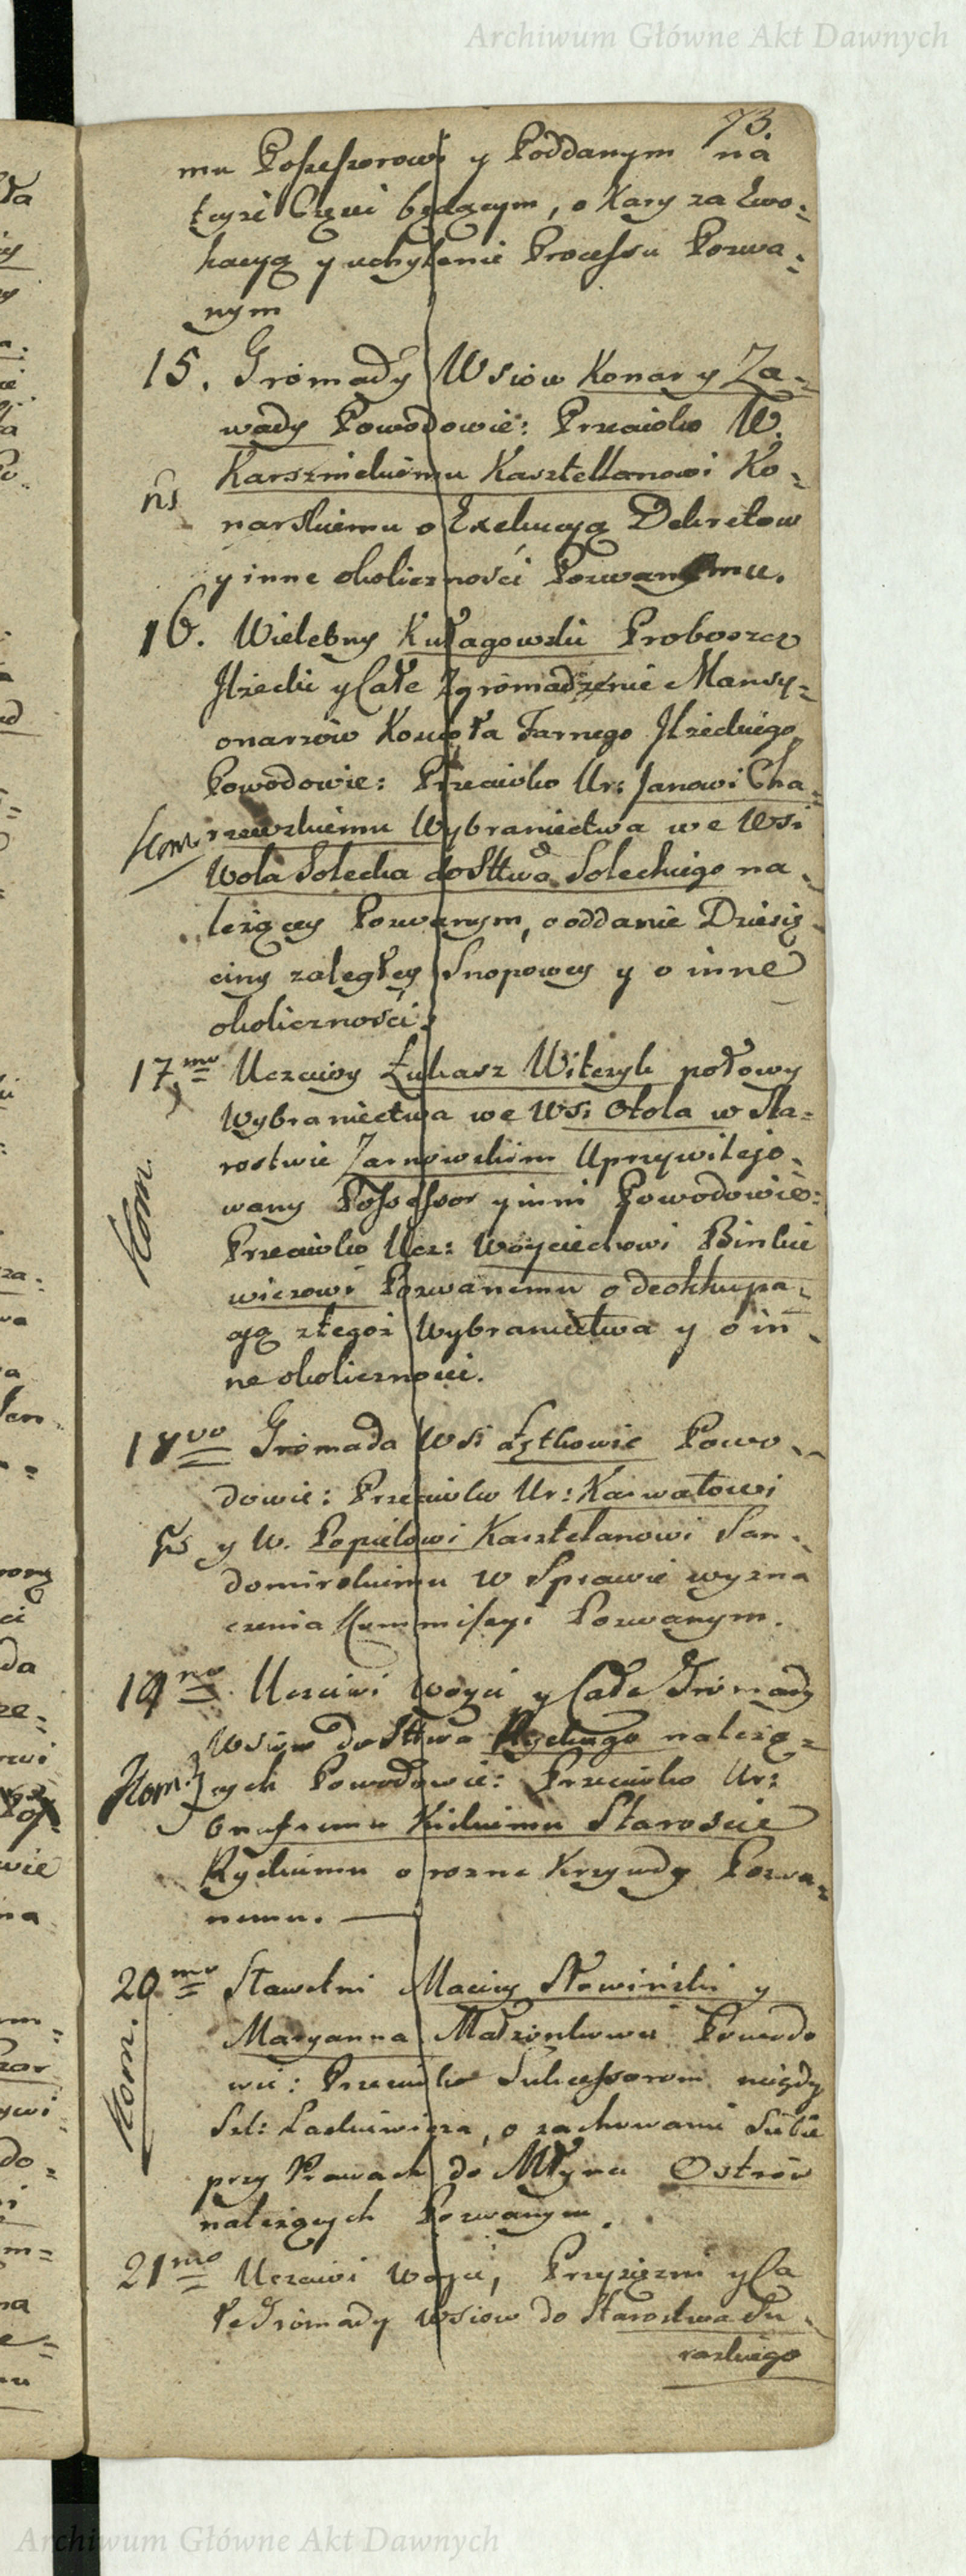 Archiwum Główne Akt Dawnych
73.
mu Possessorowi y Poddanym na
teyże Częsci będącym, o Kary za Ewo=
kacyą y uchylenie Processu Pozwa=
nym
15. Gromady Wsiow Konar y Za=
wady Powodowie: Przeciwko W.
Karsznickiemu Kasztellanowi Ko=
narskiemu o Exekucyą Dekretow
y inne okoliczności Pozwanemu.
16. Wielebny Kułagowski Proboszcz
Jłżecki y Całe Zgromadzenie Mansy=
onarzów Kościoła Farnego Jłżeckiego
Powodowie: Przeciwko Ur: Janowi Cha=
Kom. rzewskiemu Wybraniectwa we Wsi
Wola Solecka do Sttwa Soleckiego na=
leżącey Pozwanym, o oddanie Dziesię=
ciny zaległey Snopowey y o inne
okoliczności.
17.mo Uczciwy Łukasz Witczyk połowy
Wybraniectwa we Wsi Otola w Sta=
rostwie Zarnowskim Uprzywilejo=
Kom.
wany Possessor y inni Powodowie:
Przeciwko Ucz: Woyciechowi Binkie
wiczowi Pozwanemu o deokkupa=
cyą ztegoż Wybraniectwa y o in=
ne okoliczności.
18vo Gromada Wsi Łętkowie Powo=
dowie: Przeciwko Ur: Karwatowi
y W. Popielowi Kasztelanowi San=
domirskiemu w Sprawie wyzna
czenia Kommissyi Pozwanym.
19no Uczciwi Woyci y Całe Gromady
Wsiow do Sttwa Ryckiego należą=
Kom. cych Powodowie: Przeciwko Ur:
Onufremu Kickiemu Staroscie
Ryckiemu o rozne Krzywdy Pozwa=
nemu.
20mo Sławetni Maciey Słowiński y
Maryanna Małżonkowie Powodo
Kom.
wie: Przeciwko Sukcessorom niegdy
Szl: Laskiewicza, o zachowanie Siebie
przy Prawach do Młyna Ostrów
należących Pozwanym.
21mo Uczciwi Woyci, Przysięzni y Ca
łe Gromady Wsiow do Starostwa Su=
raskiego
Archiwum Główne Akt Dawnych